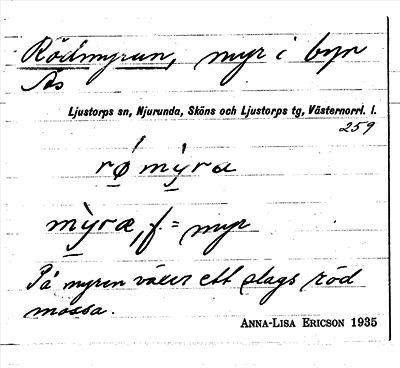 Rödmyran, myr i byn
Ås
Ljustorps sn, Njurunda, Sköns och Ljustorps tg, Västernorrl. l.
259
rø´mỳra
mỳra, f. = myr
På myren växer ett slags röd
mossa.
ANNA-LISA ERICSON 1935